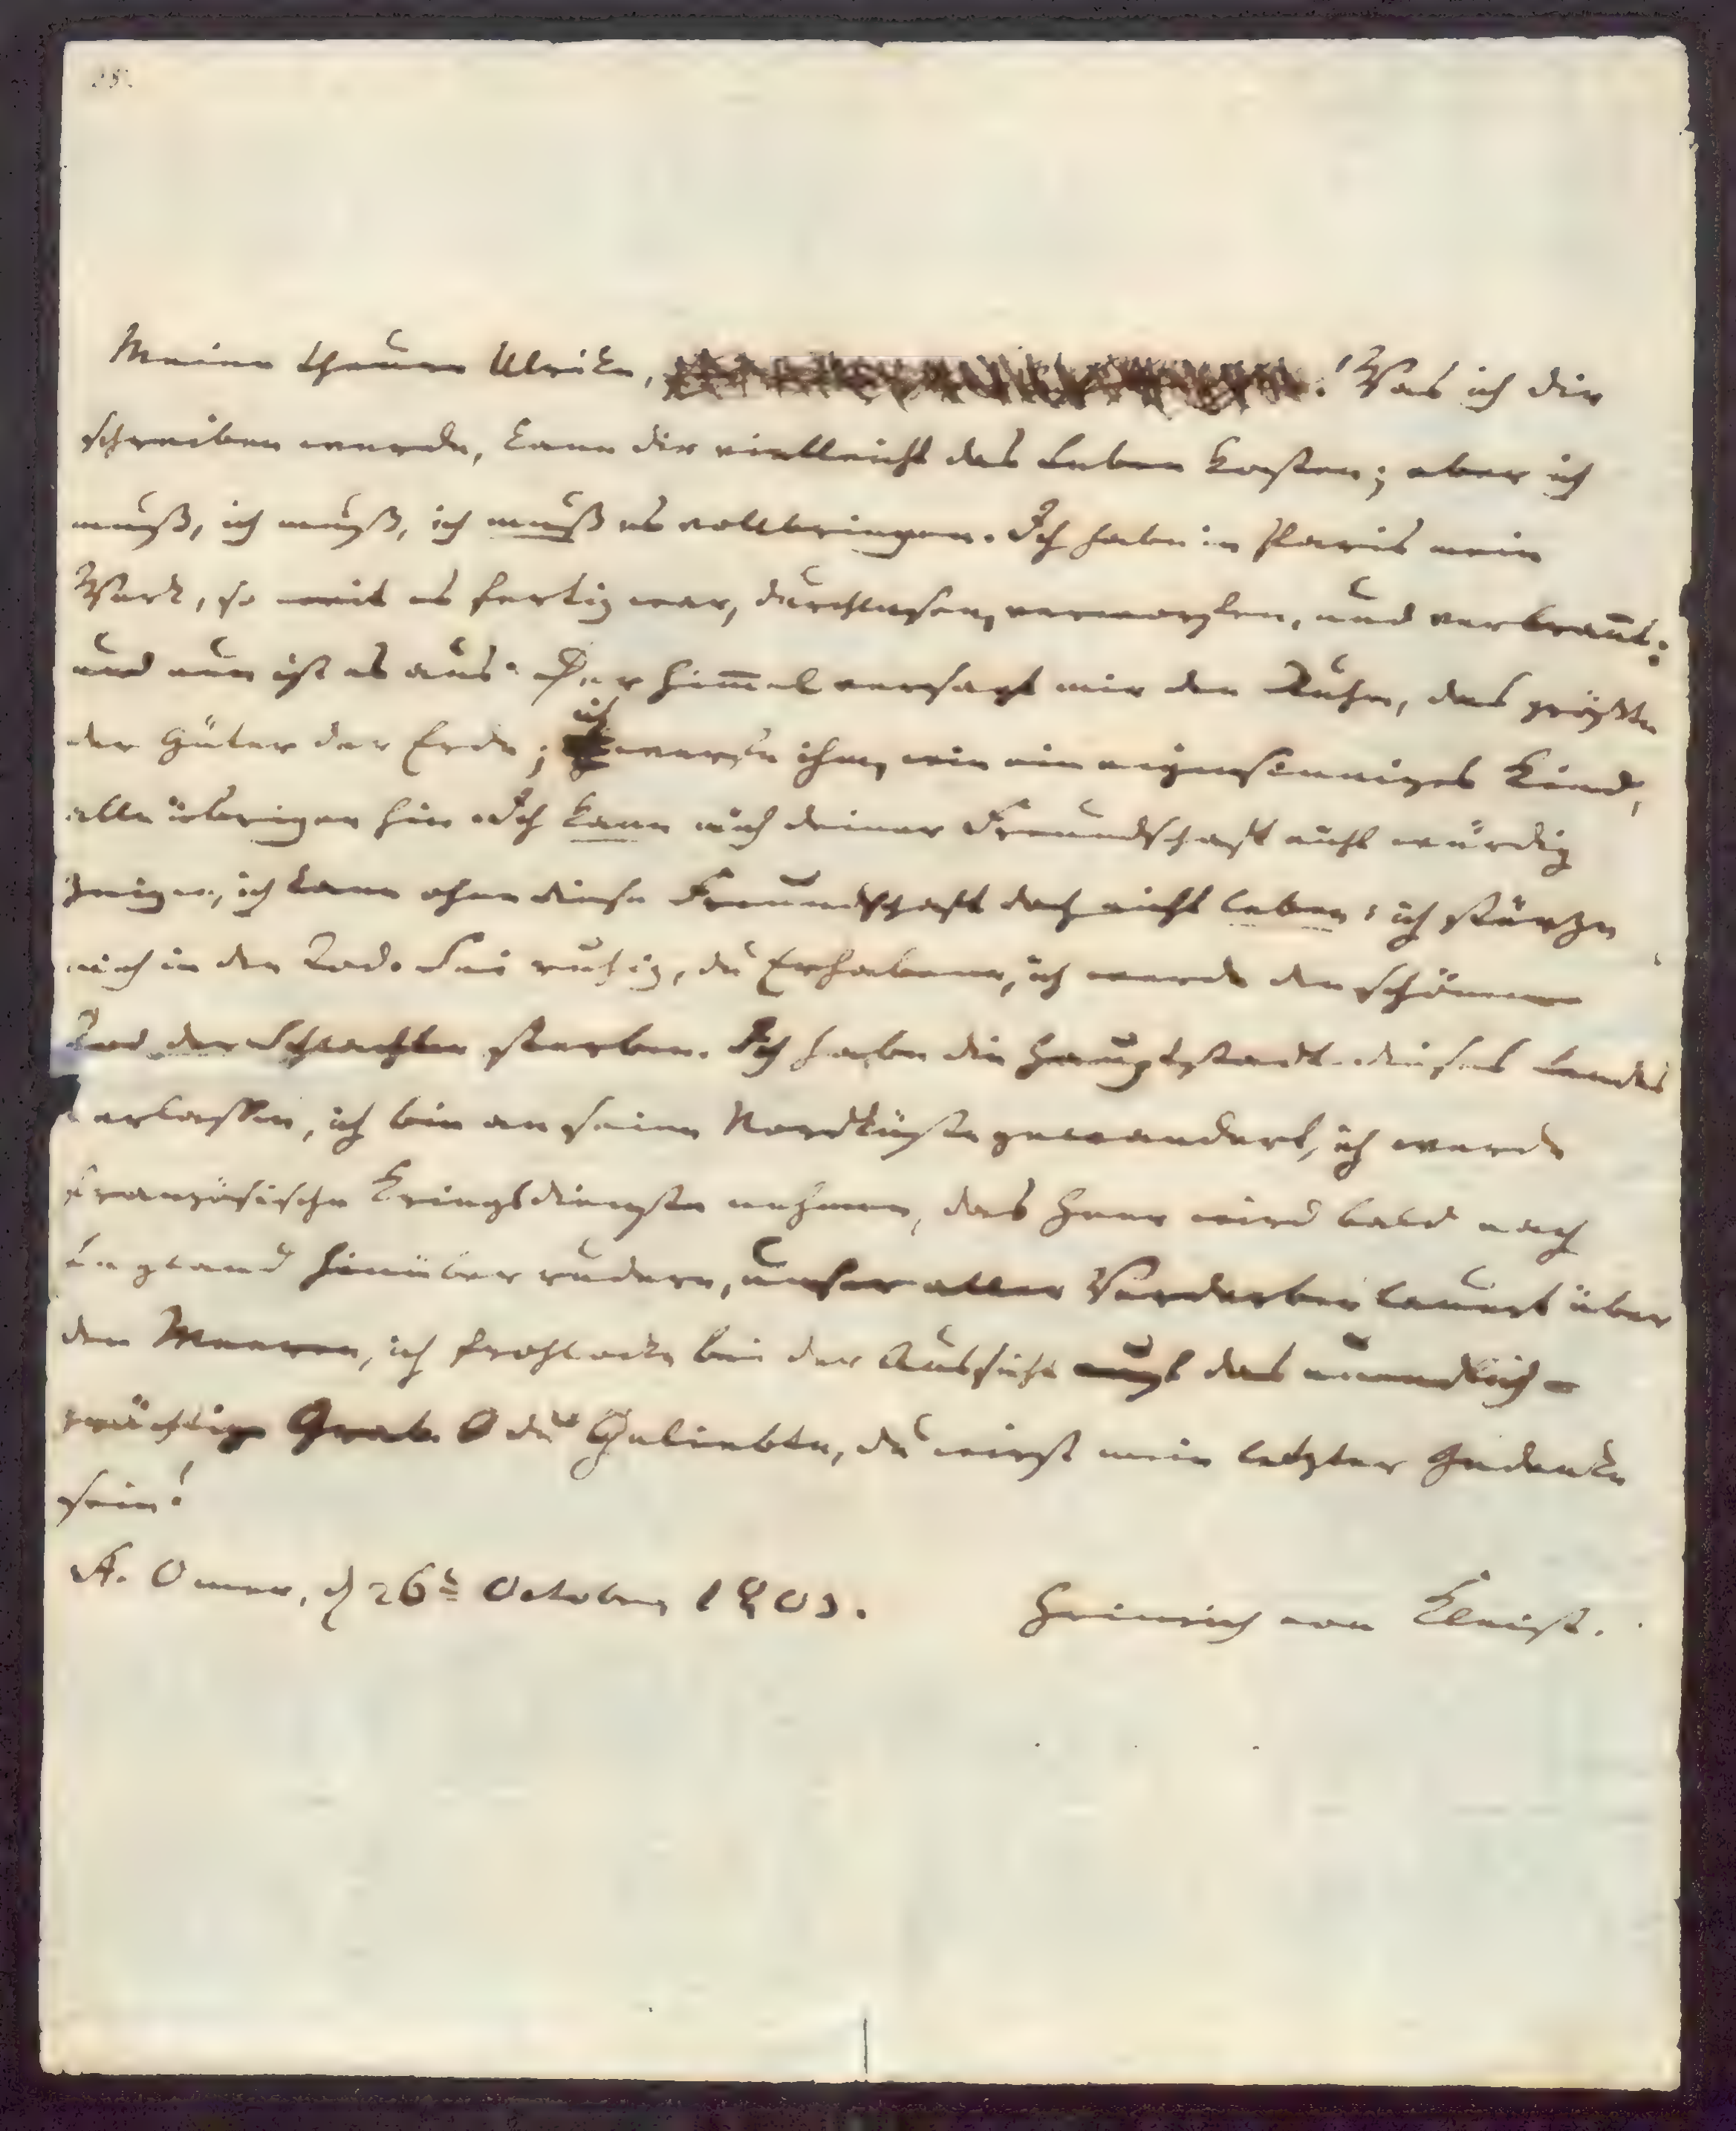 Meine theure Ulrike, ! Was ich dir
schreiben werde, kann dir vielleicht das Leben kosten; aber ich
muß, ich muß, ich muß es vollbringen. Ich habe in Paris mein
Werk, so weit es fertig war, durchlesen, verworfen, und verbran̅t:
und nun ist es aus. Der Him̅el versagt mir den Ruhm, das größte
der Güter der Erde; ich werfe ihm, wie ein eigensinniges Kind,
alle übrigen hin. Ich kann mich deiner Freundschaft nicht würdig
zeigen, ich kann ohne diese Freundschaft doch nicht leben: ich stürze
mich in den Tod. Sei ruhig, du Erhabene, ich werde den schönen
Tod der Schlachten sterben. Ich habe die Hauptstadt dieses Landes
verlassen, ich bin an seine Nordküste gewandert, ich werde
französische Kriegsdienste nehmen, das Heer wird bald nach
England hinüber rudern, unser aller Verderben lauert über
den Meeren, ich frohlocke bei der Aussicht auf das unendlich-
prächtige Grab. O du Geliebte, du wirst mein letzter Gedanke
sein!
St. Omer, d 26t October 1803. Heinrich von Kleist.